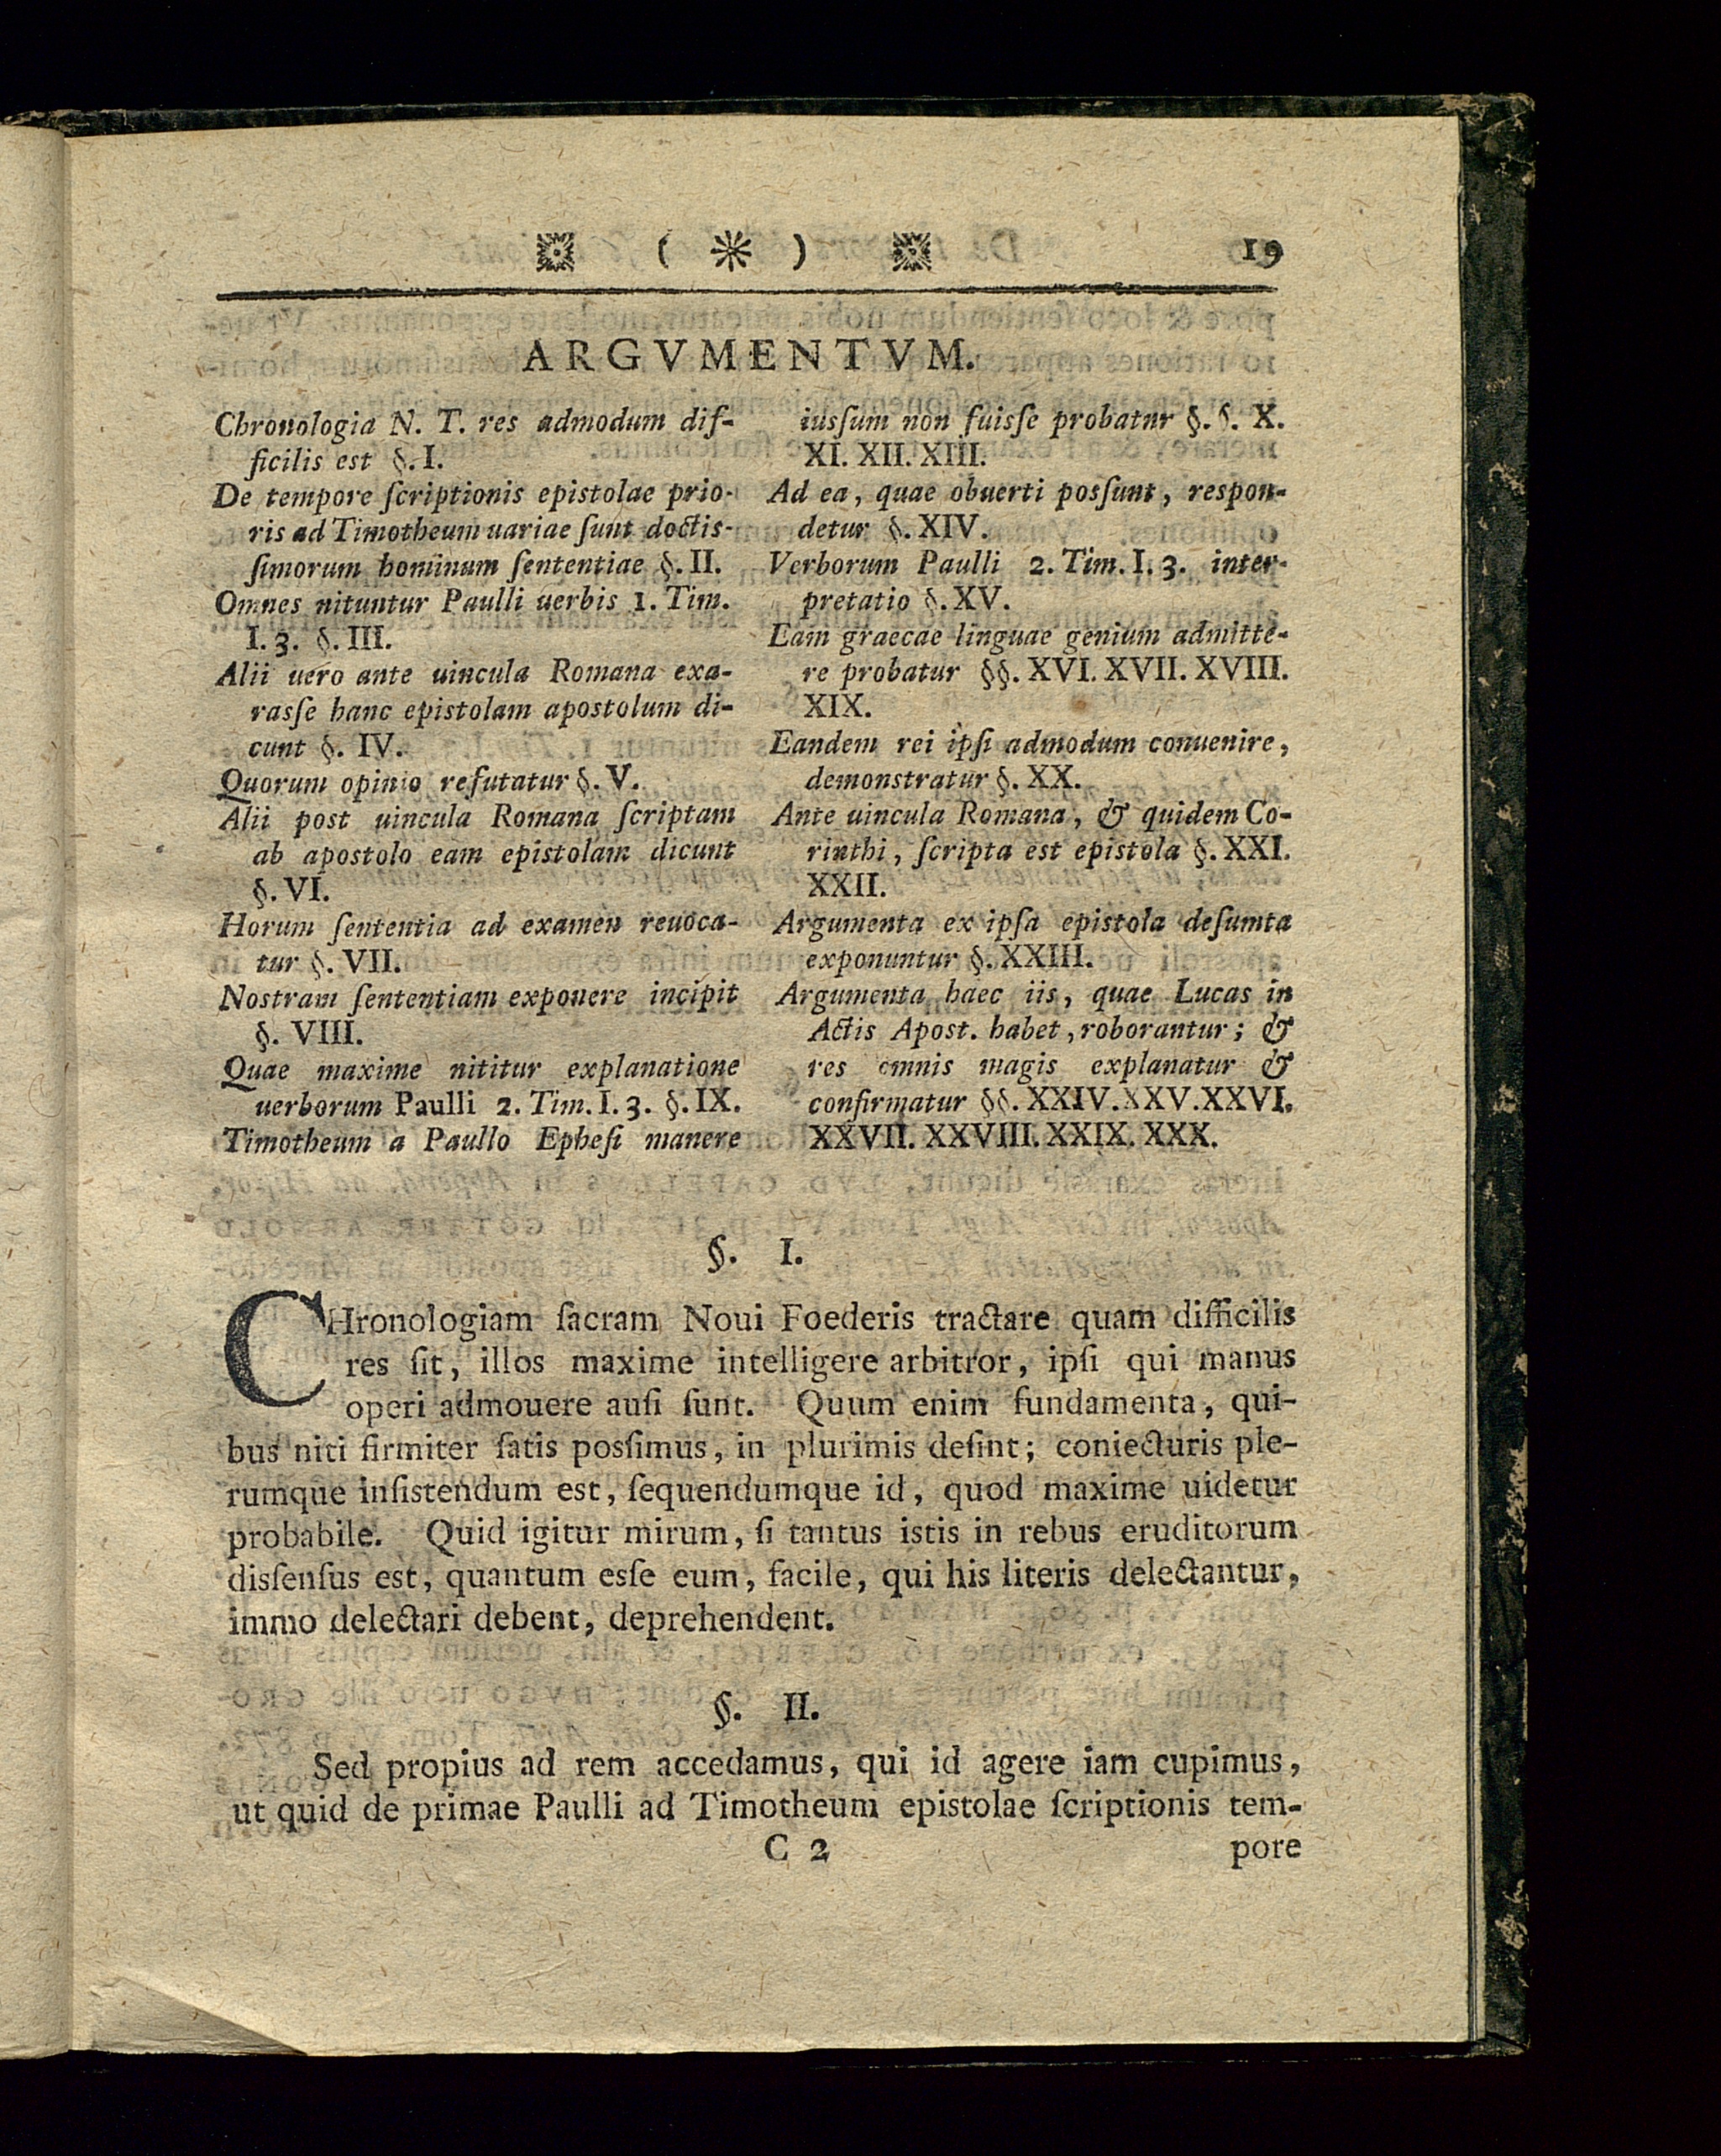 ( * ) 19
ARGVMENTVM.
Chronologia N. T. res admodum dif-
ficilis est §. I.
De tempore ſcriptionis epistolae prio-
ris ad Timotheum uariae ſunt doctis-
ſimorum hominum ſententiae §. II.
Omnes nituntur Paulli uerbis 1. Tim.
I. 3. §. III.
Alii uero ante uincula Romana exa-
rasſe hanc epistolam apostolum di-
cunt §. IV.
Quorum opinio refutatur §. V.
Alii post uincula Romana ſcriptam
ab apostolo eam epistolam dicunt
§. VI.
Horum ſententia ad examen reuoca-
tur §. VII.
Nostram ſententiam exponere incipit
§. VIII.
Quae maxime nititur explanatione
uerborum Paulli 2. Tim. I. 3. §. IX.
Timotheum a Paullo Epheſi manere
iusſum non fuisſe probatur §. §. X.
XI. XII. XIII.
Ad ea, quae obuerti posſunt, respon-
detur §. XIV.
Verborum Paulli 2. Tim. I. 3. inter-
pretatio §. XV.
Eam graecae linguae genium admitte-
re probatur §§. XVI. XVII. XVIII.
XIX.
Eandem rei ipſi admodum conuenire,
demonstratur §. XX.
Ante uincula Romana, & quidem Co-
rinthi, ſcripta est epistola §. XXI.
XXII.
Argumenta ex ipſa epistola deſumta
exponuntur §. XXIII.
Argumenta haec iis, quae Lucas in
Actis Apost. habet, roborantur; &
res omnis magis explanatur &
confirmatur §§. XXIV. XXV. XXVI.
XXVII. XXVIII. XXIX. XXX.
§. I.
CHronologiam ſacram Noui Foederis tractare quam difficilis
res ſit, illos maxime intelligere arbitror, ipſi qui manus
operi admouere auſi ſunt. Quum enim fundamenta, qui-
bus niti firmiter ſatis posſimus, in plurimis deſint; coniecturis ple-
rumque inſistendum est, ſequendumque id, quod maxime uidetur
probabile. Quid igitur mirum, ſi tantus istis in rebus eruditorum
disſenſus est, quantum esſe eum, facile, qui his literis delectantur,
immo delectari debent, deprehendent.
§. II.
Sed propius ad rem accedamus, qui id agere iam cupimus,
ut quid de primae Paulli ad Timotheum epistolae ſcriptionis tem-
C 2 pore